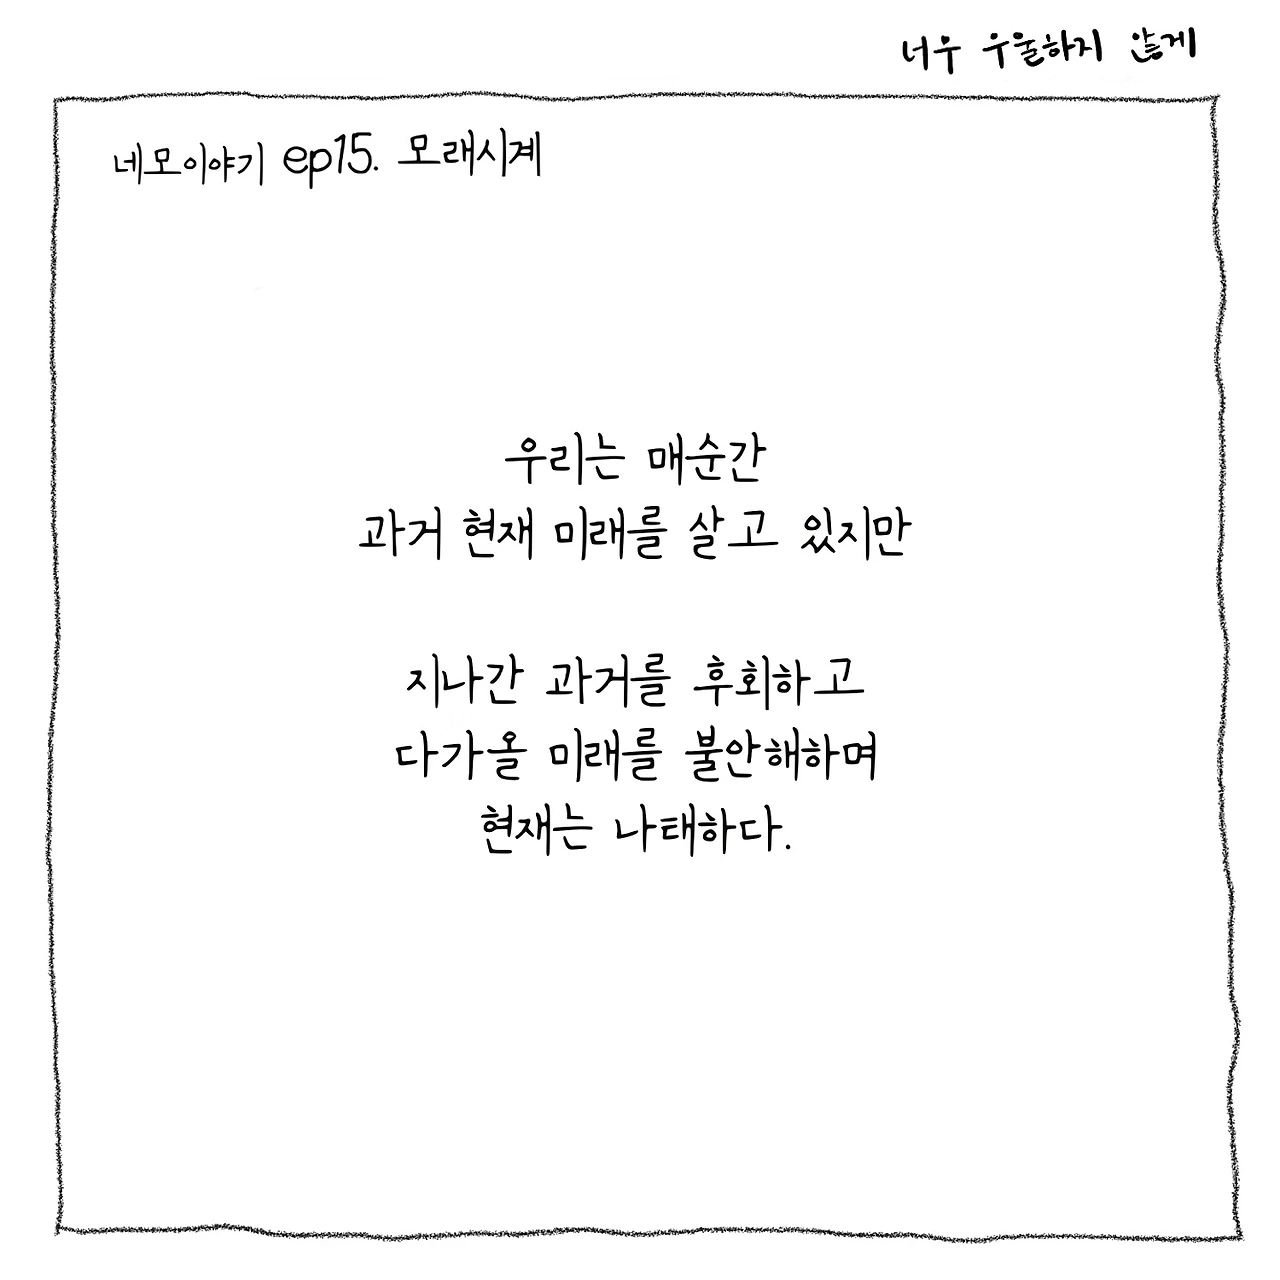 너우 우울하지 않게
네모이야기 ep15. 모래시계
우리는 매순간
과거 현재 미래를 살고 있지만
지나간 과거를 후회하고
다가올 미래를 불안해하며
현재는 나태하다.